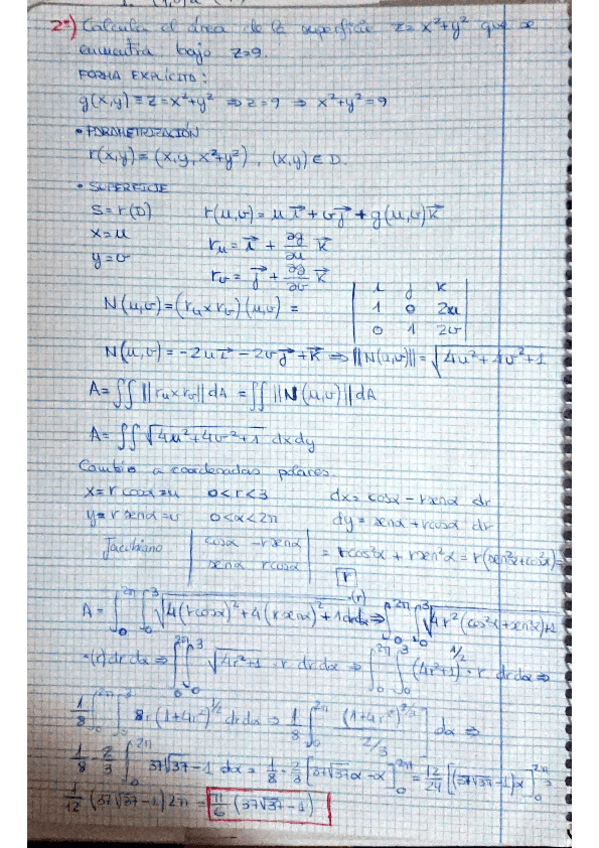 2º) Calcular el área de la superficie z = x²+y² que se
encuentra bajo z=9.
FORMA EXPLÍCITO:
g(x,y) ≡ z = x²+y² ⇒ z=9 ⇒ x²+y²=9
• PARAMETRIZACIÓN
r(x,y) = (x,y, x²+y²), (x,y) ∈ D.
• SUPERFICIE
S = r(D) r(u,v) = u i⃗ + v j⃗ + g(u,v) k⃗
x = u r_u = i⃗ + ∂g/∂u k⃗
y = v r_v = j⃗ + ∂g/∂v k⃗
N(u,v) = (r_u x r_v)(u,v) = | i j k | 1 0 2u | 0 1 2v |
N(u,v) = -2u i⃗ - 2v j⃗ + k⃗ ⇒ ||N(u,v)|| = √4u²+4v²+1
A = ∬ ||r_u x r_v|| dA = ∬ ||N(u,v)|| dA
A = ∬ √4u²+4v²+1 dxdy
Cambio a coordenadas polares.
x = r cosα = u 0<r<3 dx = cosα - r senα dr
y = r senα = v 0<α<2π dy = senα + r cosα dr
Jacobiano | cosα -r senα | senα r cosα | = r cos²α + r sen²α = r(sen²α+cos²α) =
r
A = ∫₀^2π ∫₀^3 √4(r cosα)²+4(r senα)²+1 ·(r) dr dα ⇒ ∫₀^2π ∫₀^3 √4r²(cos²α+sen²α)+1
·(r) dr dα ⇒ ∫₀^2π ∫₀^3 √4r²+1 · r dr dα ⇒ ∫₀^2π ∫₀^3 (4r²+1)^1/2 · r dr dα ⇒
1/8 ∫₀^2π ∫₀^3 8r (1+4r²)^1/2 dr dα ⇒ 1/8 ∫₀^2π [(1+4r²)^3/2 / 2/3] dα ⇒
1/8 · 2/3 ∫₀^2π 37√37 - 1 dα = 1/8 · 2/3 [37√37 α - α]₀^2π = 12/24 [(37√37-1)α]₀^2π =
1/12 (37√37-1) 2π = π/6 · (37√37-1)